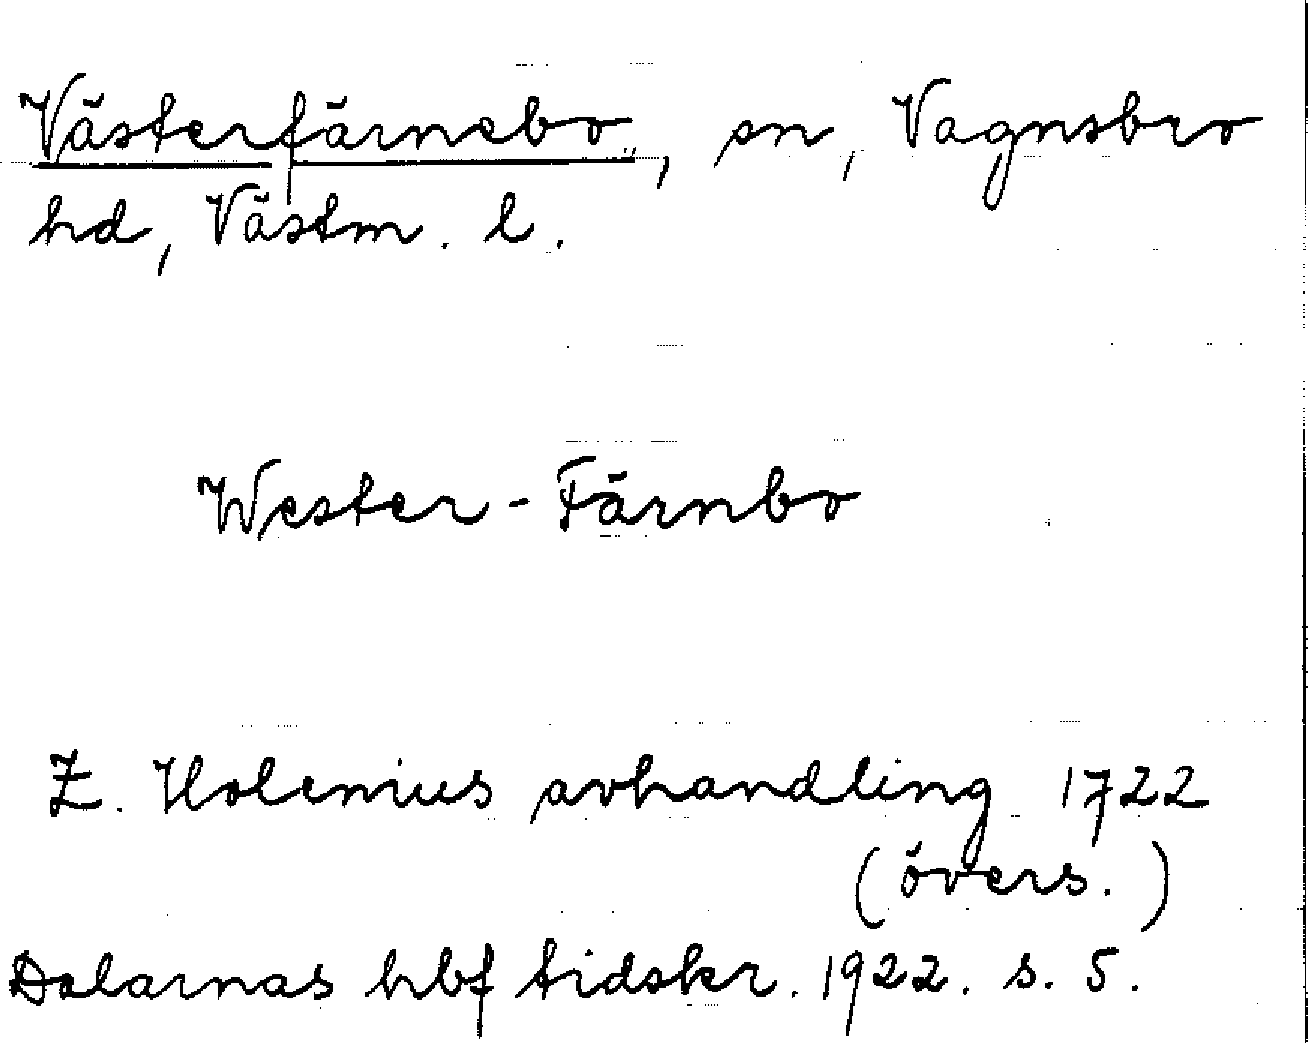 Västerfärnebo, sn, Vagnsbro
hd, Västm. l.
Wester-Färnbo
Z. Holenius avhandling 1722
(övers.)
Dalarnas hbf tidskr. 1922. s. 5.